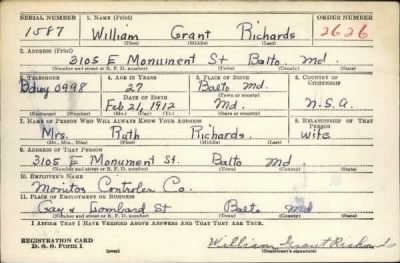 SERIAL NUMBER 1. NAME (Print) ORDER NUMBER
1587 William Grant Richards 2626
(First) (Middle) (Last)
2. ADDRESS (Print)
3105 E Monument St Balto. Md.
(Number and street or R. F. D. number) (Town) (County) (State)
3. TELEPHONE 4. AGE IN YEARS 5. PLACE OF BIRTH 6. COUNTRY OF CITIZENSHIP
Bdwy 0998 27 Balto Md.
DATE OF BIRTH (Town or county)
Feb 21, 1912 Md. U.S.A.
(Exchange) (No.) (Mo.) (Day) (Yr.) (State or country)
7. NAME OF PERSON WHO WILL ALWAYS KNOW YOUR ADDRESS 8. RELATIONSHIP OF THAT PERSON
Mrs. Ruth Richards. wife
(Mr., Mrs., Miss) (First) (Middle) (Last)
9. ADDRESS OF THAT PERSON
3105 E Monument St. Balto Md.
(Number and street or R. F. D. number) (Town) (County) (State)
10. EMPLOYER'S NAME
Monitor Controler Co.
11. PLACE OF EMPLOYMENT OR BUSINESS
Gay & Lombard St Balto Md
(Number and street or R. F. D. number) (Town) (County) (State)
I AFFIRM THAT I HAVE VERIFIED ABOVE ANSWERS AND THAT THEY ARE TRUE.
REGISTRATION CARD
D. S. S. Form 1 (over) William Grant Richards
(Registrant's signature)